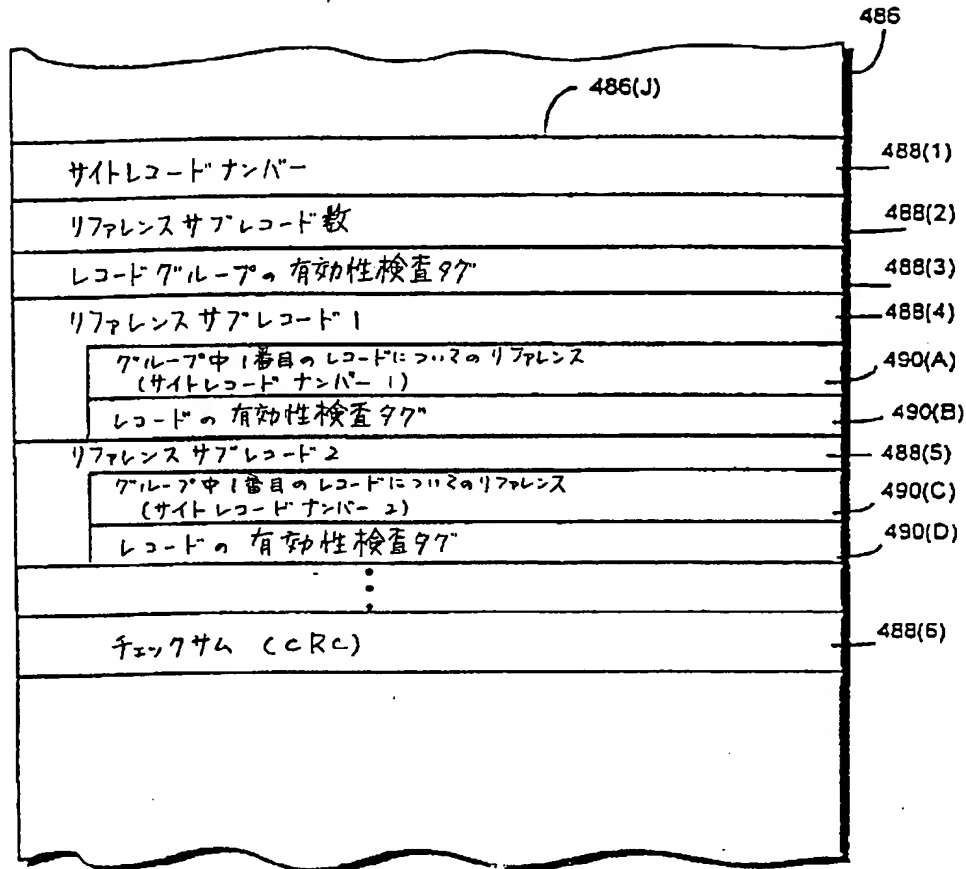 486
486(J)
サイトレコードナンバー
488(1)
リファレンスサブレコード数
488(2)
レコードグループの有効性検査タグ
488(3)
リファレンスサブレコード1
488(4)
グループ中1番目のレコードについてのリファレンス
(サイトレコードナンバー 1)
490(A)
レコードの有効性検査タグ
490(B)
リファレンスサブレコード2
488(5)
グループ中1番目のレコードについてのリファレンス
(サイトレコードナンバー 2)
490(C)
レコードの有効性検査タグ
490(D)
チェックサム (CRC)
488(6)